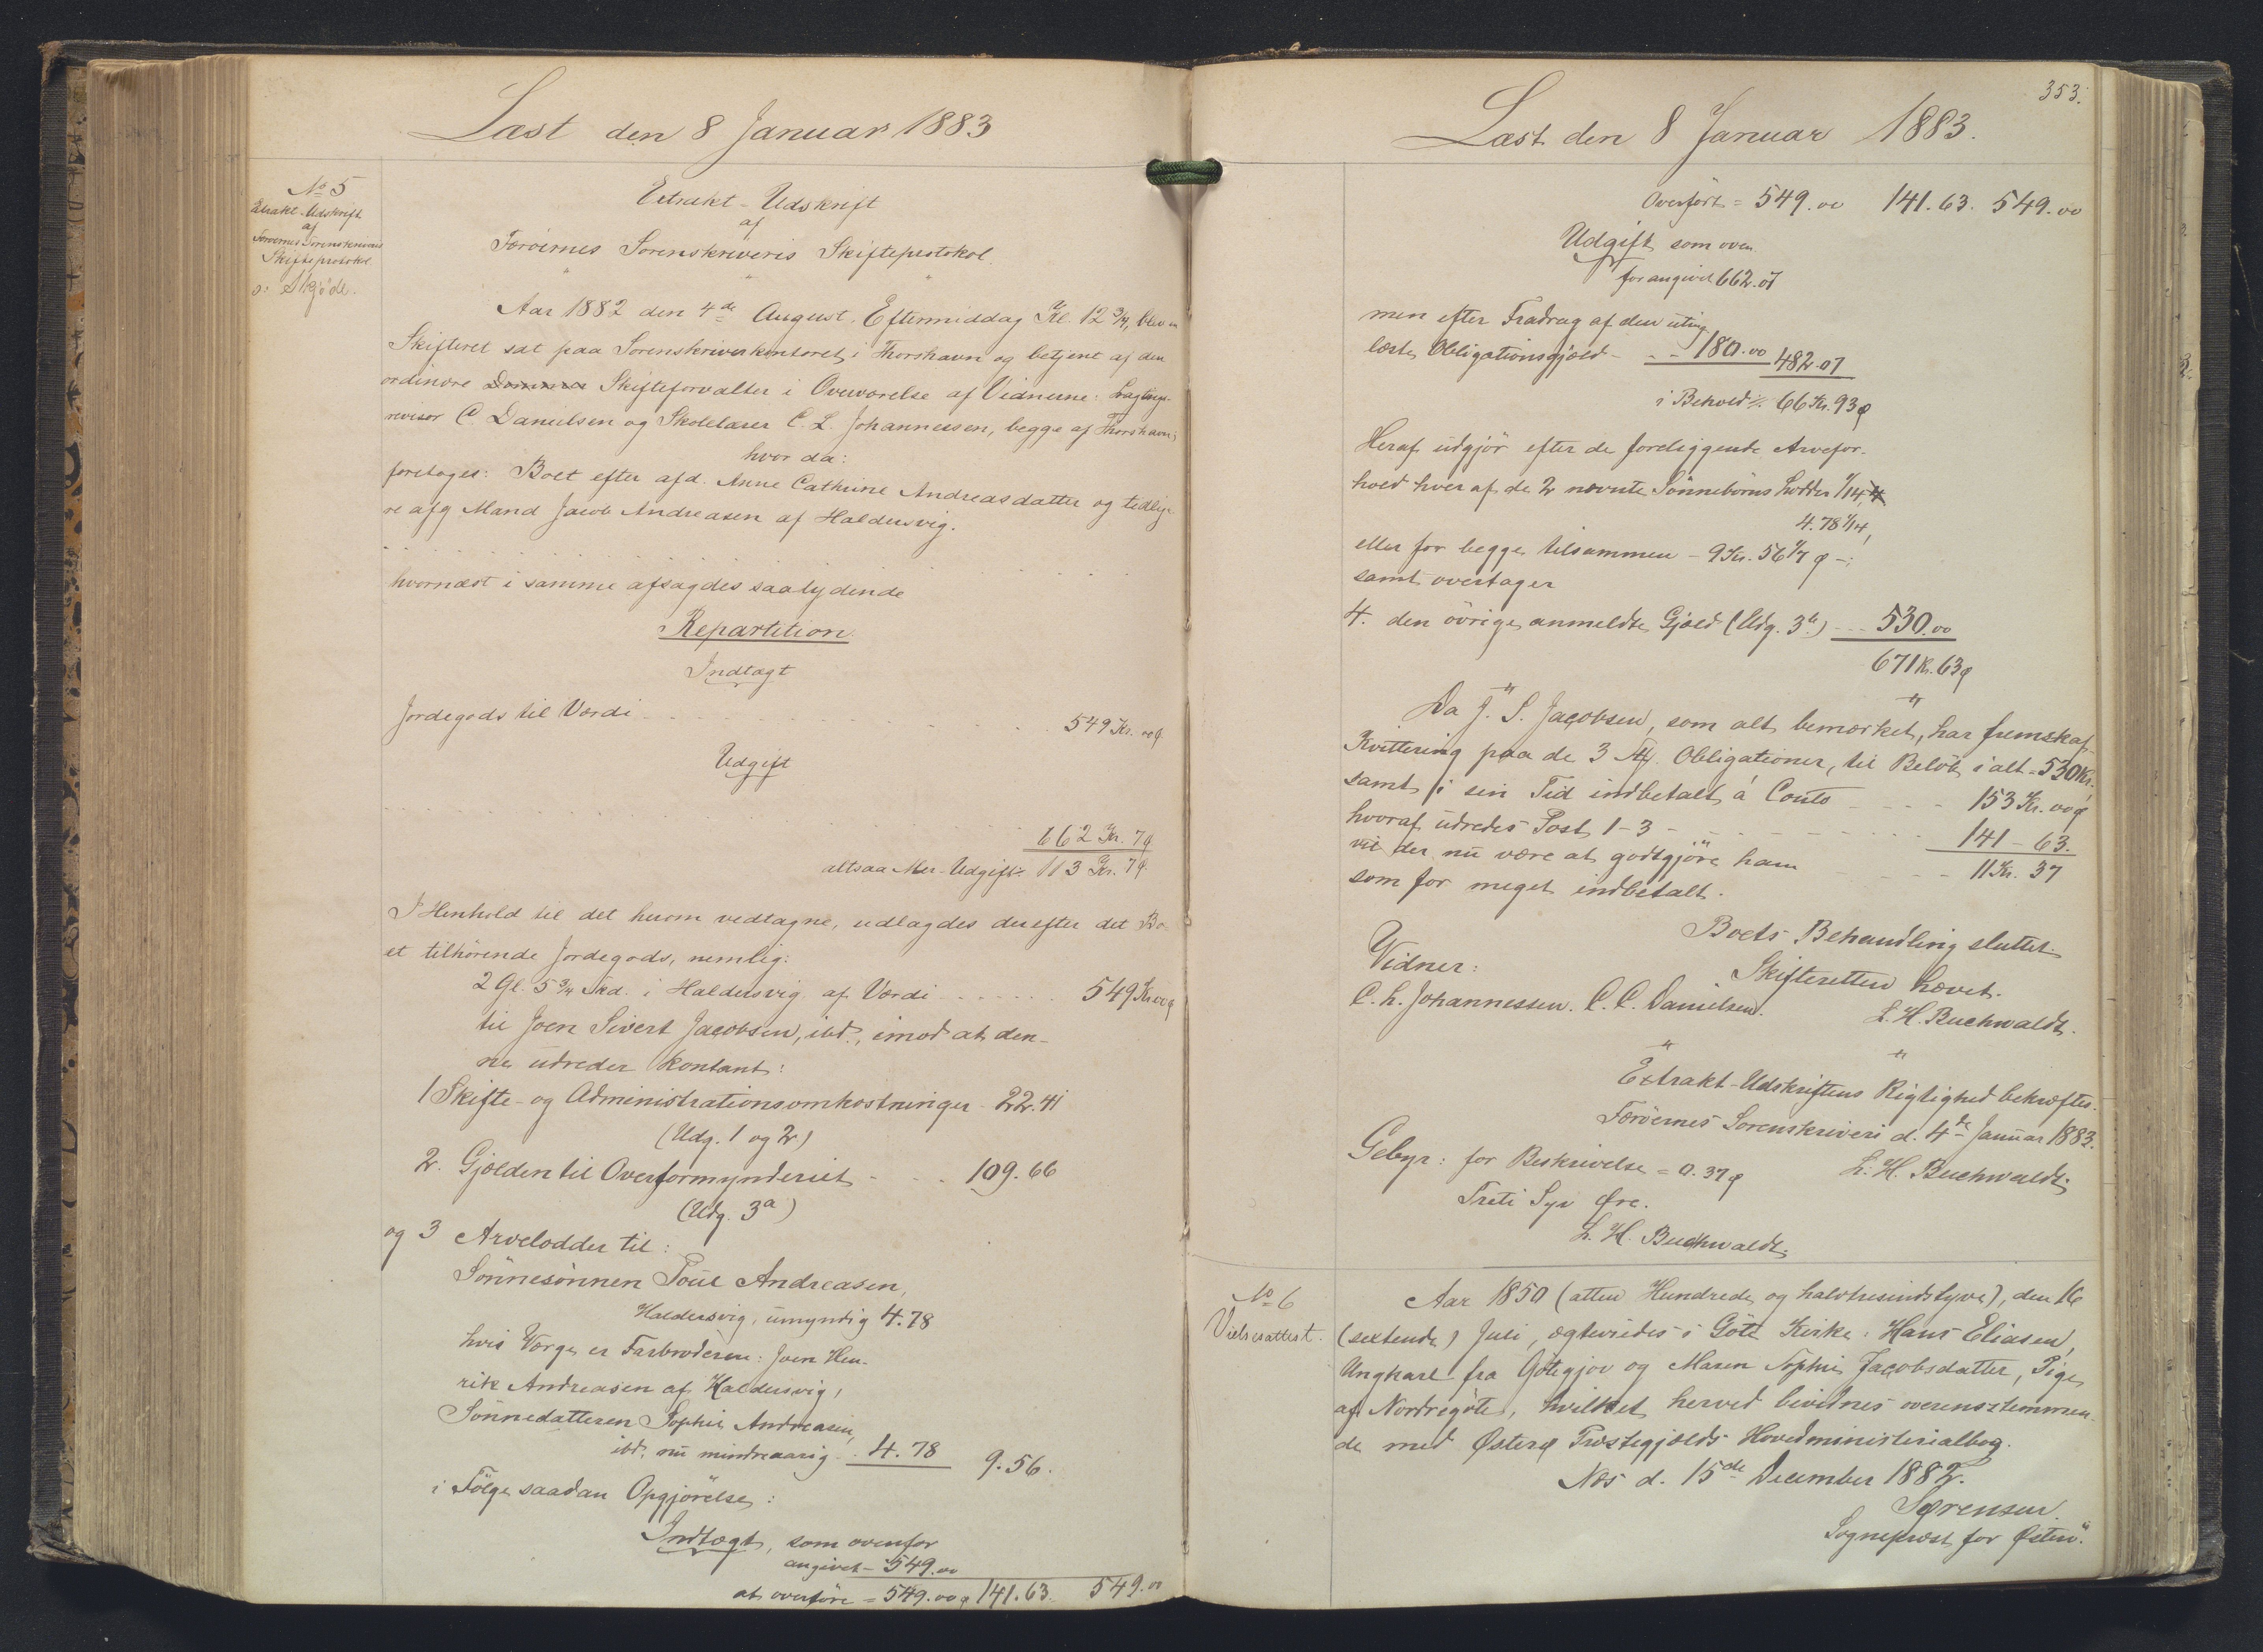 Læst den 8 Januar 1883
No 5
Extrakt-Udskrift
af
Færøernes Sorenskriveris
Skifteprotokol
o: Skjøde.
Extrakt-Udskrift
af
Færøernes Sorenskriveris Skifteprotokol.
Aar 1882 den 4de August, Eftermiddag Kl. 12 3/4, blev
Skifteret sat paa Sorenskriverkontoret i Thorshavn og betjent af den
ordinære Skifteforvalter i Overværelse af Vidnerne:
revisor C Danielsen og Skolelærer C. L. Johannessen, begge af Thorshavn;
hvor da:
foretoges: Boet efter afd. Anne Cathrine Andreasdatter og tidlige-
re afg Mand Jacob Andreasen af Haldersvig.
hvornæst i samme afsagdes saalydende
Repartition.
Indtægt
Jordegods til Værdi 549 Kr. 00 ø
Udgift
662 Kr. 7 ø
altsaa Mer-Udgift 113 Kr. 7 ø
I Henhold til det herom vedtagne, udlagdes derefter det Bo-
et tilhørende Jordegods, nemlig:
2 Gl. 5 3/4 Skd. i Haldersvig af Værdi 549 Kr 00 ø
til Joen Sivert Jacobsen, ibd., imod at den-
ne udreder kontant:
1 Skifte- og Administrationsomkostninger 22.41
(Udg. 1 og 2)
2. Gjælden til Overformynderiet - 109.66
(Udg. 3a)
og 3 Arvelodder til:
Sønnesønnen Poul Andreasen,
Haldersvig, umyndig 4.78
hvis Værge er Farbroderen: Joen Hen-
rik Andreasen af Haldersvig,
Sønnedatteren Sophie Andreasen,
ibd. nu mindreaarig 4.78 9.56.
i Følge saadan Opgjørelse:
Indtægt, som ovenfor
angivet - 549.00
at overføre = 549.00 ø 141.63. 549.00
353.
Læst den 8 Januar 1883.
Overført = 549.00 141.63. 549.00
Udgift som oven
for angivet 662.07
men efter Fradrag af den uting-
læste Obligationsgjæld - 180.00 482.07
i Behold 66 Kr. 93 ø
Heraf udgjør efter de foreliggende Arvefor-
hold hver af de 2 nævnte Sønnebørns Lodder 1/14,
4.78 1/14,
eller for begge tilsammen - 9 Kr. 56 1/7 ø -;
samt overtager
4. den øvrige anmeldte Gjæld (Udg. 3b) 530.00
671 Kr. 63 ø
Da J. S. Jacobsen, som alt bemærket, har fremskaf.
Kvittering paa de 3 Obligationer, til Beløb i alt = 530 Kr.
samt i sin Tid indbetalt á Conto - 153 Kr. 00 ø
hvoraf udredes Post 1-3 - 141 - 63.
vil der nu være at godtgjøre ham - 11 Kr. 37
som for meget indbetalt.
Boets Behandling sluttet.
Skifteretten hævet.
Vidner:
C. L. Johannessen. C. C. Danielsen. L. H. Buchwaldt.
Extrakt-Udskriftens Rigtighed bekræftes.
Færøernes Sorenskriveri d. 4de Januar 1883.
L. H. Buchwaldt.
Gebyr: for Beskrivelse = 0.37 ø
Treti Syv Øre.
L. H. Buchwaldt.
No 6
Vielsesattest.
Aar 1850 (atten Hundrede og halvtresindstyve), den 16
(sextende) Juli, ægteviedes i Göte Kirke: Hans Eliasen,
Ungkarl fra Götegjov og Maren Sophie Jacobsdatter, Pige
af Nordregöte, hvilket herved bevidnes overensstemmen-
de med Østerø Præstegjelds Hovedministerialbog.
Næs d. 15de December 1882.
Sørensen.
Sognepræst for Østerø.